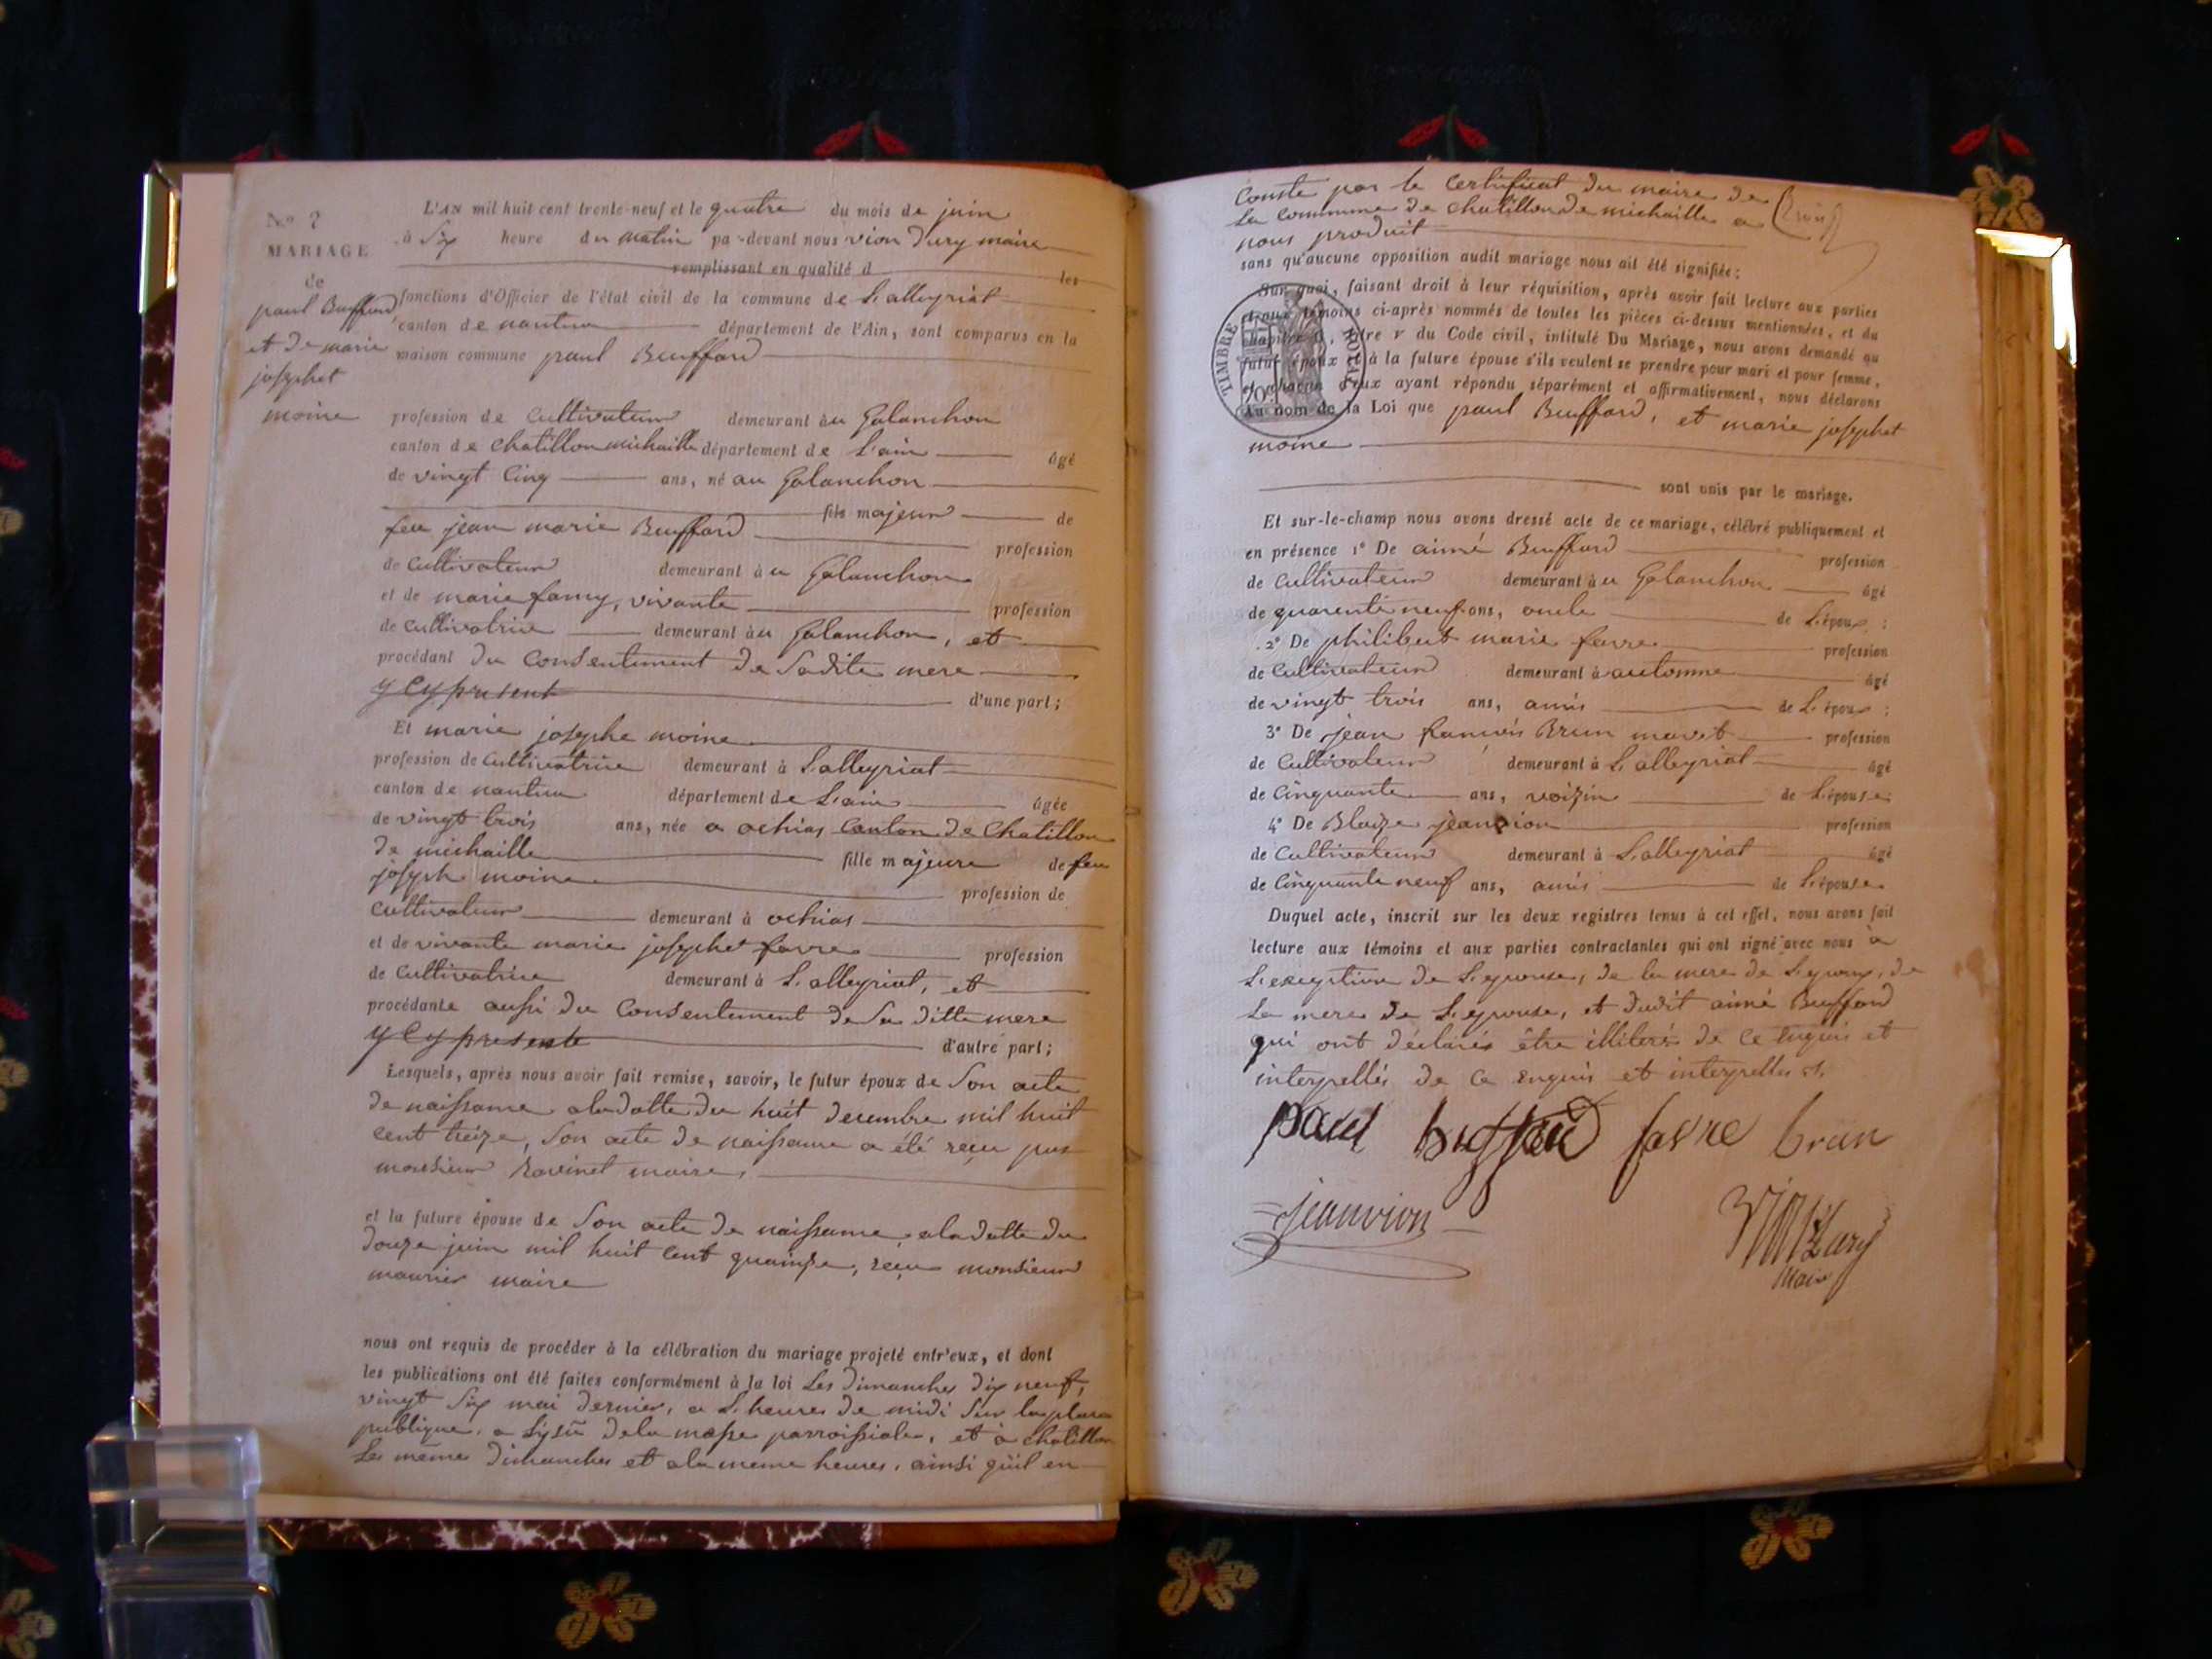 N.º 7
MARIAGE
de
paul Buffard
et de marie
josephet
moine
L'AN mil huit cent trente-neuf et le quatre du mois de juin
à six heure du matin par-devant nous vion Dury maire
remplissant en qualité d les
fonctions d'Officier de l'état civil de la commune de L'alleyriat
canton de nantua département de l'Ain, sont comparus en la
maison commune paul Buffard
profession de cultivateur demeurant au Galanchon
canton de chatillon michaille département de L'ain âgé
de vingt cinq ans, né au Galanchon
fils majeur de
feu jean marie Buffard profession
de cultivateur demeurant au Galanchon
et de marie famy, vivante profession
de cultivatrice demeurant au Galanchon, et
procédant du consentement de Sadite mere
y cy présent d'une part;
Et marie josephe moine
profession de cultivatrice demeurant à L'alleyriat
canton de nantua département de L'ain âgée
de vingt trois ans, née a ochias canton de Chatillon
de michaille fille majeure de feu
joseph moine profession de
cultivateur demeurant à ochias
et de vivante marie josephet favre profession
de cultivatrice demeurant à L'alleyriat, et
procédante aussi du consentement de Sa ditte mere
y cy presente d'autre part;
Lesquels, après nous avoir fait remise, savoir, le futur époux de Son acte
de naissance aladatte du huit decembre mil huit
cent treize, Son acte de naissance a été reçu par
monsieur Ravinet maire,
et la future épouse de Son acte de naissance, aladatte du
douze juin mil huit cent quainze, reçu monsieur
maurier maire
nous ont requis de procéder à la célébration du mariage projeté entr'eux, et dont
les publications ont été faites conformément à la loi Les Dimanches dix neuf,
vingt Six mai dernier, a L'heure de midi Sur la place
publique, a Lysüe dela messe parroissiale, et à chatillon
Les même Dimanches et ala meme heures, ainsi qu'il en
conste par le certificat du maire de
La commune de chatillon de michaille a
nous produit
sans qu'aucune opposition audit mariage nous ait été signifiée;
Sur quoi, faisant droit à leur réquisition, après avoir fait lecture aux parties
et aux témoins ci-après nommés de toutes les pièces ci-dessus mentionnées, et du
chapitre 6, titre v du Code civil, intitulé Du Mariage, nous avons demandé au
futur époux et à la future épouse s'ils veulent se prendre pour mari et pour femme,
et chacun d'eux ayant répondu séparément et affirmativement, nous déclarons
Au nom de la Loi que paul Buffard, et marie josephet
moine
TIMBRE ROYAL
70
sont unis par le mariage.
Et sur-le-champ nous avons dressé acte de ce mariage, célébré publiquement et
en présence 1º De aimé Buffard profession
de cultivateur demeurant au Galanchon âgé
de quarente neuf ans, oncle de L'époux;
2º De philibert marie favre profession
de cultivateur demeurant à automne âgé
de vingt trois ans, amis de L'époux;
3º De jean francois Brun mavet profession
de cultivateur demeurant à L'alleyriat âgé
de cinquante ans, voizin de L'épouse;
4º De Blaize jeanvion profession
de cultivateur demeurant à L'alleyriat âgé
de cinquante neuf ans, amis de L'épouse.
Duquel acte, inscrit sur les deux registres tenus à cet effet, nous avons fait
lecture aux témoins et aux parties contractantes qui ont signé avec nous à
L'exeption de L'epouse, de la mere de L'epoux, de
La mere de L'epouse, et dudit aimé Buffard
qui ont déclarés être illiterés de ce enquis et
interpellés de ce enquis et interpellés
paul buffard favre brun
jeanvion
Vion Dury
Maire